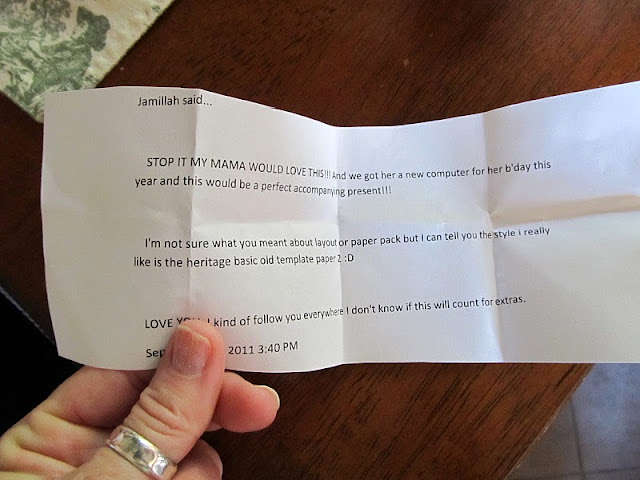 Jamillah said...
STOP IT MY MAMA WOULD LOVE THIS!!! And we got her a new computer for her b'day this
year and this would be a perfect accompanying present!!!
I'm not sure what you meant about layout or paper pack but I can tell you the style i really
like is the heritage basic old template paper 2 :D
LOVE I kind of follow you everywhere I don't know if this will count for extras.
2011 3:40 PM